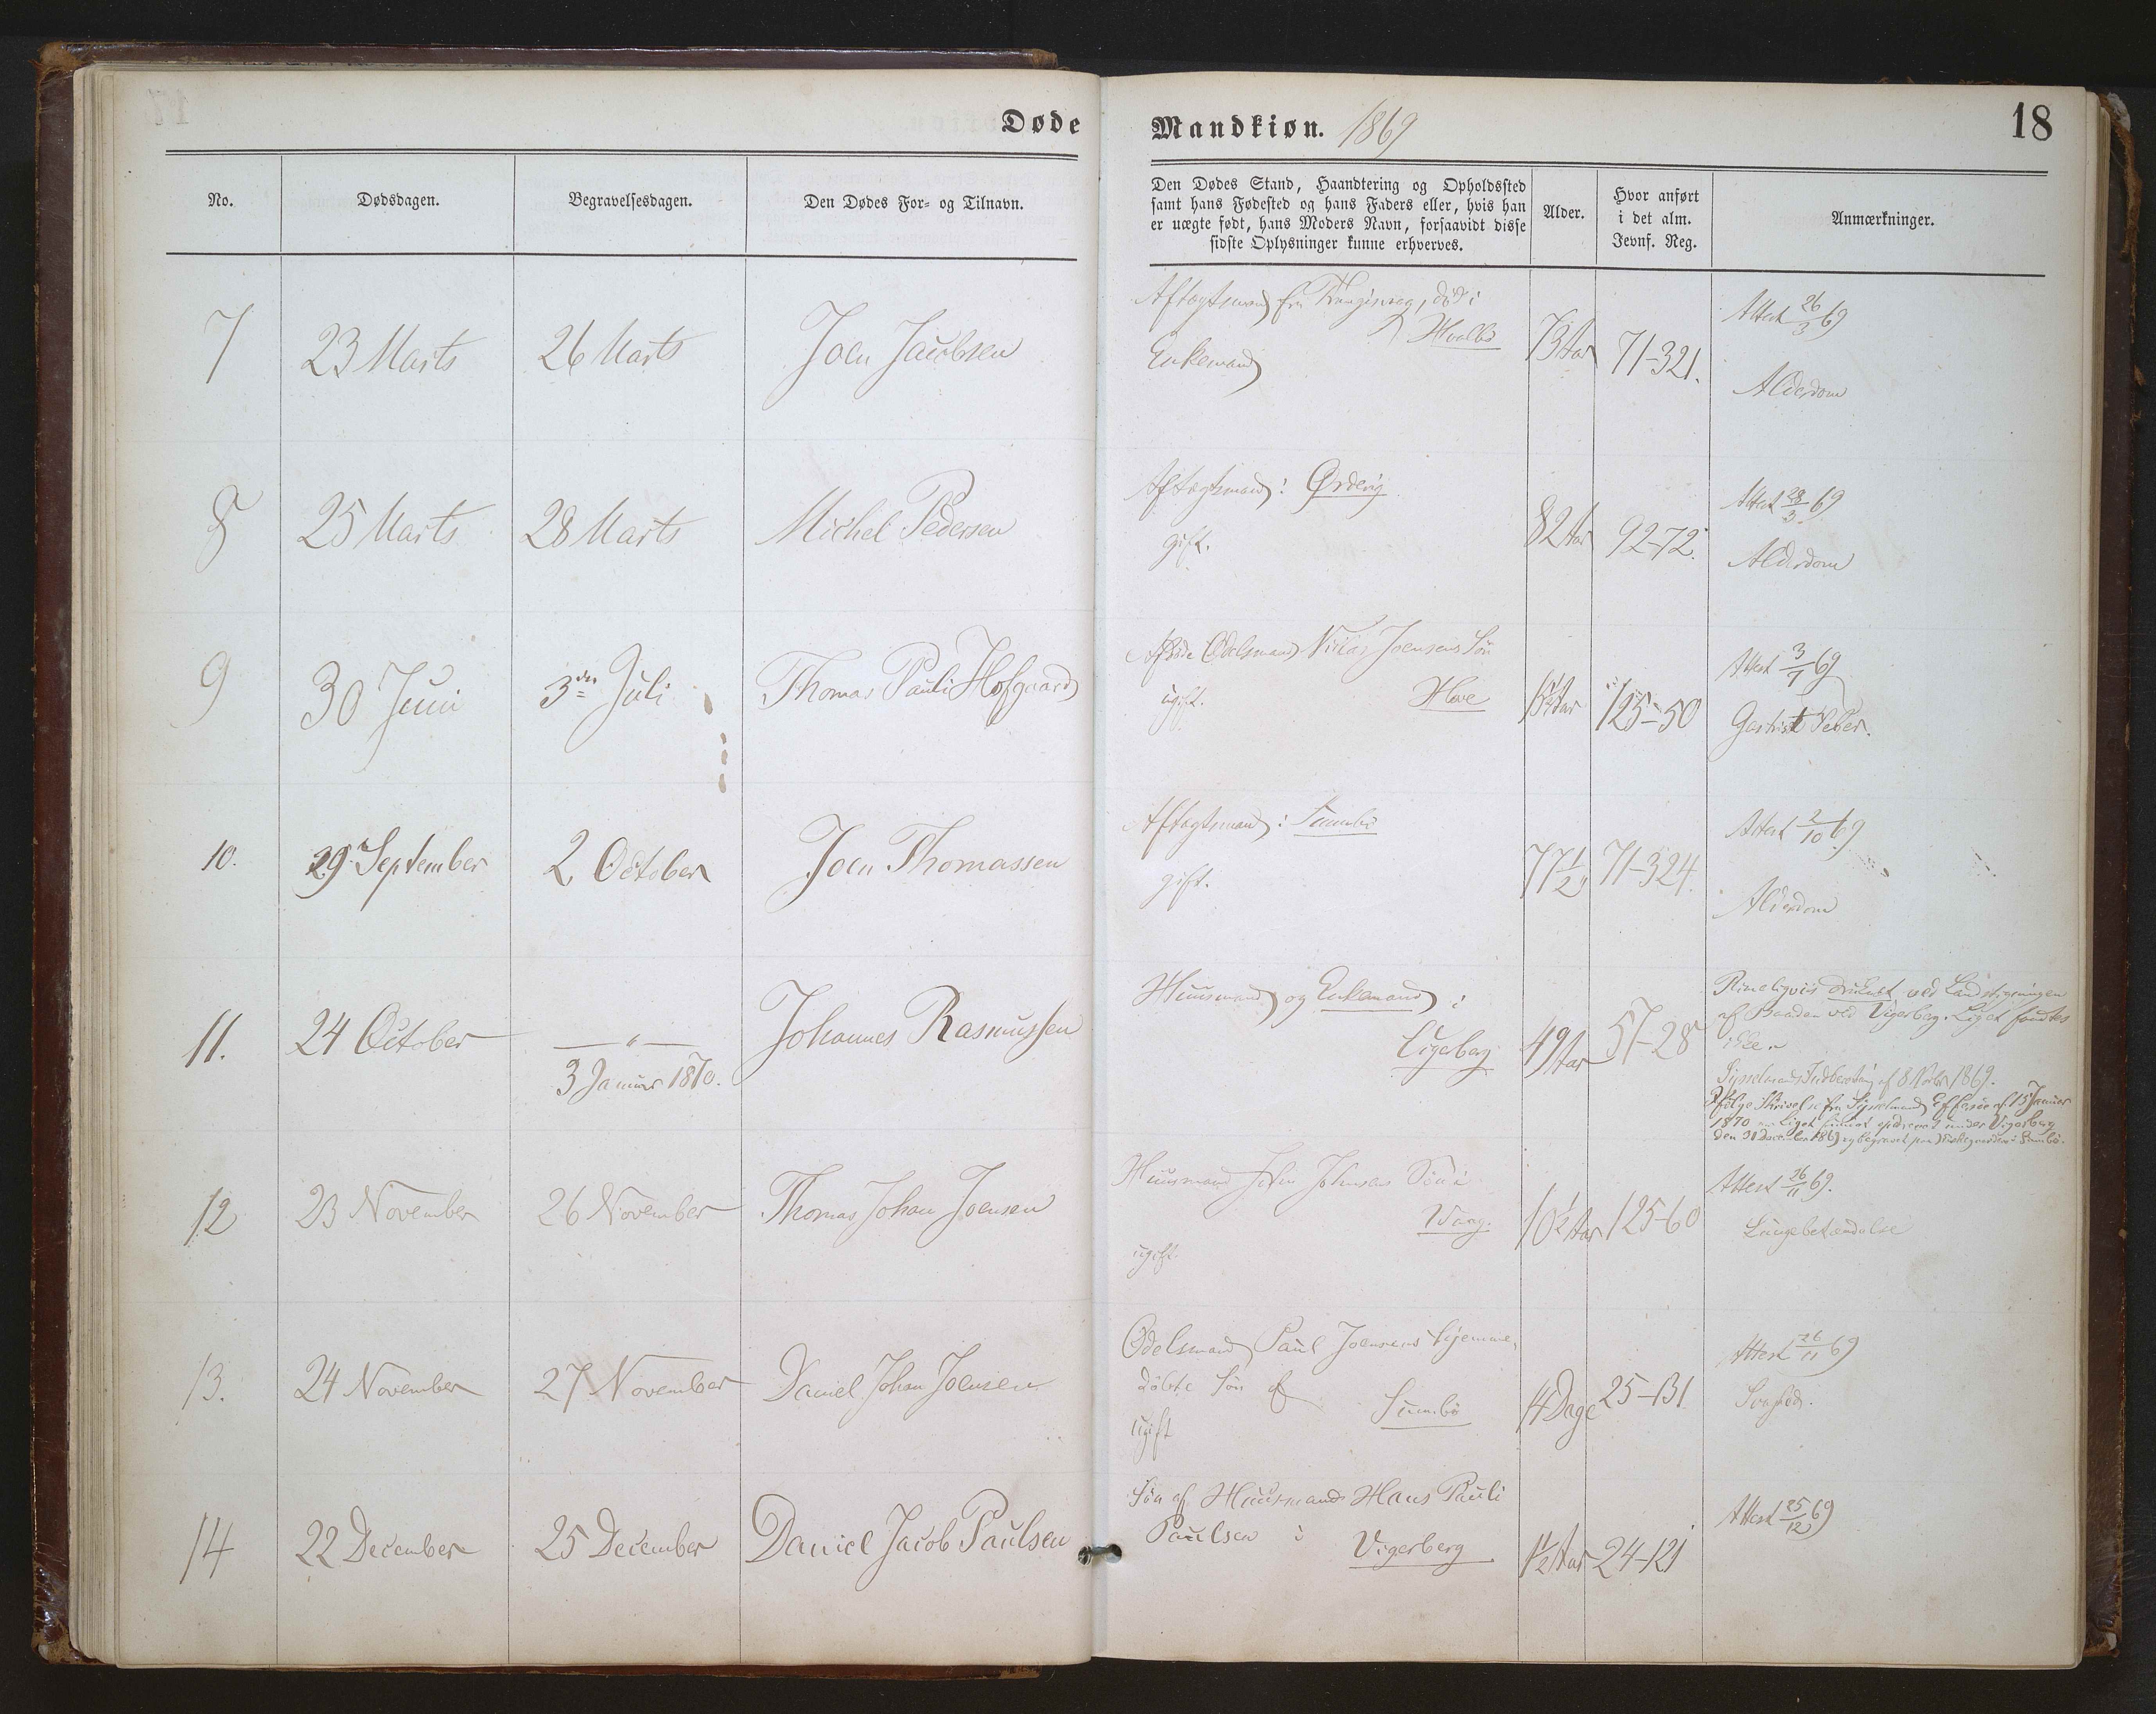 Døde
Mandkiøn. 1869
18
No.
Dødsdagen.
Begravelsesdagen.
Den Dødes For- og Tilnavn.
Den Dødes Stand, Haandtering og Opholdssted
samt hans Fødested og hans Faders eller, hvis han
er uægte født, hans Moders Navn, forsaavidt disse
sidste Oplysninger kunne erhverves.
Alder.
Hvor anført
i det alm.
Jevnf. Reg.
Anmærkninger.
7
23 Marts
26 Marts
Joen Jacobsen
Aftægtsmand fra død i
Hvalbö
Enkemand
73 Aar
71-321.
Attest 26/3 69
Alderdom
8
25 Marts
28 Marts
Michel Pedersen
Aftægtsmand i Ørdevig
gift.
82 Aar
92-72.
Attest 28/3 69
Alderdom
9
30 Juni
3die Juli
Thomas Pauli Hofgaard
Odelsmand Niclas Joensens Sön
ugift.
Hove
125-50
Attest 3/7 69
Gastrisk Feber.
10.
29 September
2 October
Joen Thomassen
Aftægtsmand i Sumbö
gift.
77 1/2
71-324.
Attest 2/10 69
Alderdom
11.
24 October
— " —
3 Januar 1870.
Johannes Rasmussen
Huusmand og Enkemand i
Vigerberg
49 Aar
57-28
Rimeligviis druknet ved Landstigningen
af Baaden ved Vigerberg. Liget fandtes
ikke.
Sysselmands Indberetning af 8 1869.
Ifølge Skrivelse fra Sysselmand Effersøe af 15 Januar
1870 er Liget fundet opdrevet under Vigerberg
den 31 December 1869 og begravet paa Kirkegaarden i Sumbö.
12
23 November
26 November
Thomas Johan Joensen
Huusmand Johnsens Sön i
Waag.
ugift.
10 1/2 Aar
125-60
Attest 26/11 69.
Lungebetændelse
13.
24 November
27 November
Daniel Johan Joensen
Odelsmand Paul Joensens hjemme-
döbte Sön af
Sumbö
ugift
14 Dage
25-131
Attest 26/11 69
Svaghed.
14
22 December
25 December
Daniel Jacob Paulsen
Sön af Huusmand Hans Pauli
Paulsen i
Vigerberg
1/2 Aar
24-121
Attest 25/12 69